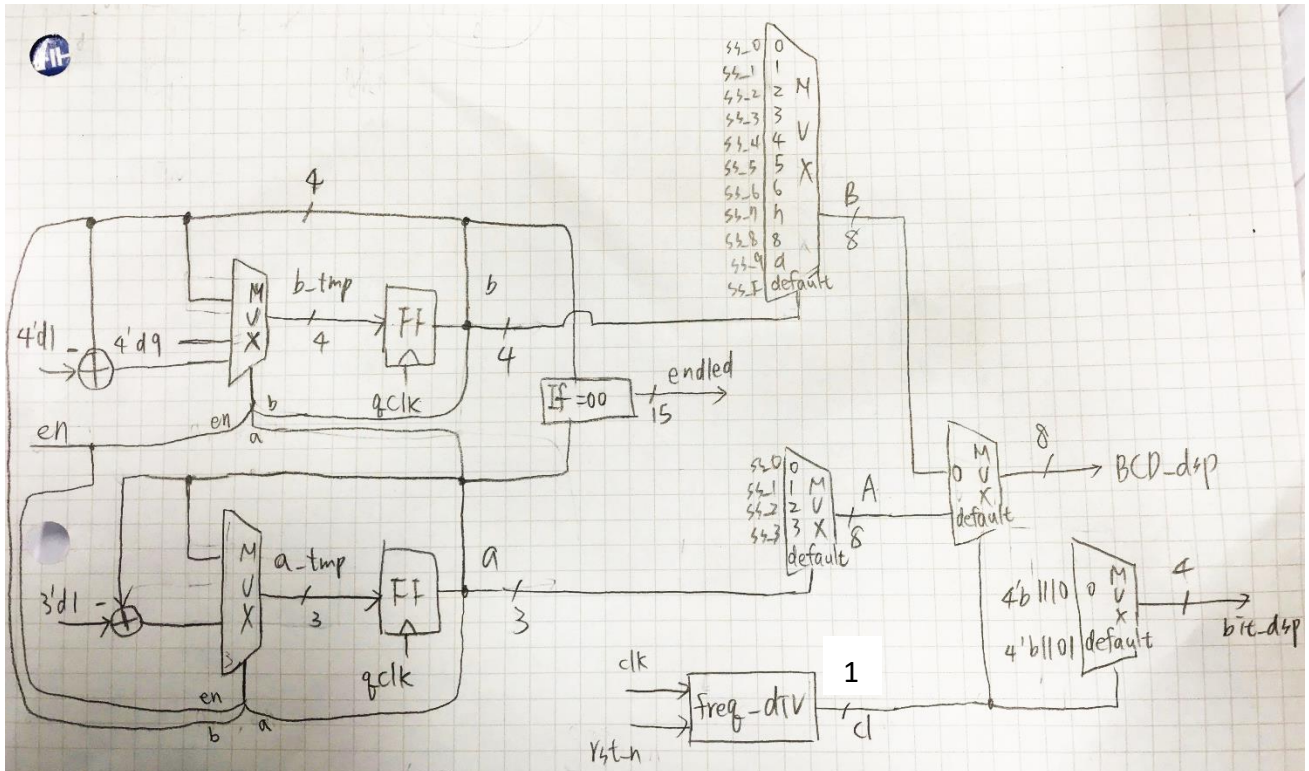 ss_0 0
ss_1 1
ss_2 2
ss_3 3
ss_4 4
ss_5 5
ss_6 6
ss_7 7
ss_8 8
ss_9 9
ss_F default
MUX
B
8
4
MUX
b_tmp
4
FF
qclk
b
4
4'd1
-
4'd9
en
en
b
a
If =00
endled
15
ss_0 0
ss_1 1
ss_2 2
ss_3 3
default
MUX
A
8
0
MUX
default
8
BCD_dsp
3'd1
-
MUX
3
a_tmp
3
FF
qclk
a
3
en
b
a
4'b1110 0
4'b1101 default
MUX
4
bit_dsp
clk
rst_n
freq_div
1
cl